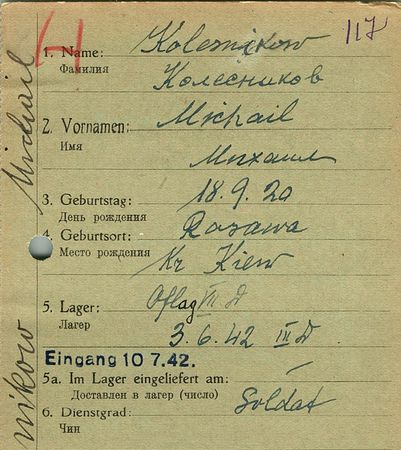 H
117
1. Name: Kolesnikow
Фамилия Колесников
2. Vornamen: Michail
Имя Михаил
3. Geburtstag: 18.9.20
День рождения
4. Geburtsort: Rasawa
Место рождения Kr Kiew
5. Lager: Oflag III D
Лагер 3.6.42 III D
Eingang 10 7. 42.
5a. Im Lager eingeliefert am: –
Доставлен в лагер (число)
6. Dienstgrad: Soldat
Чин
nikow Michail